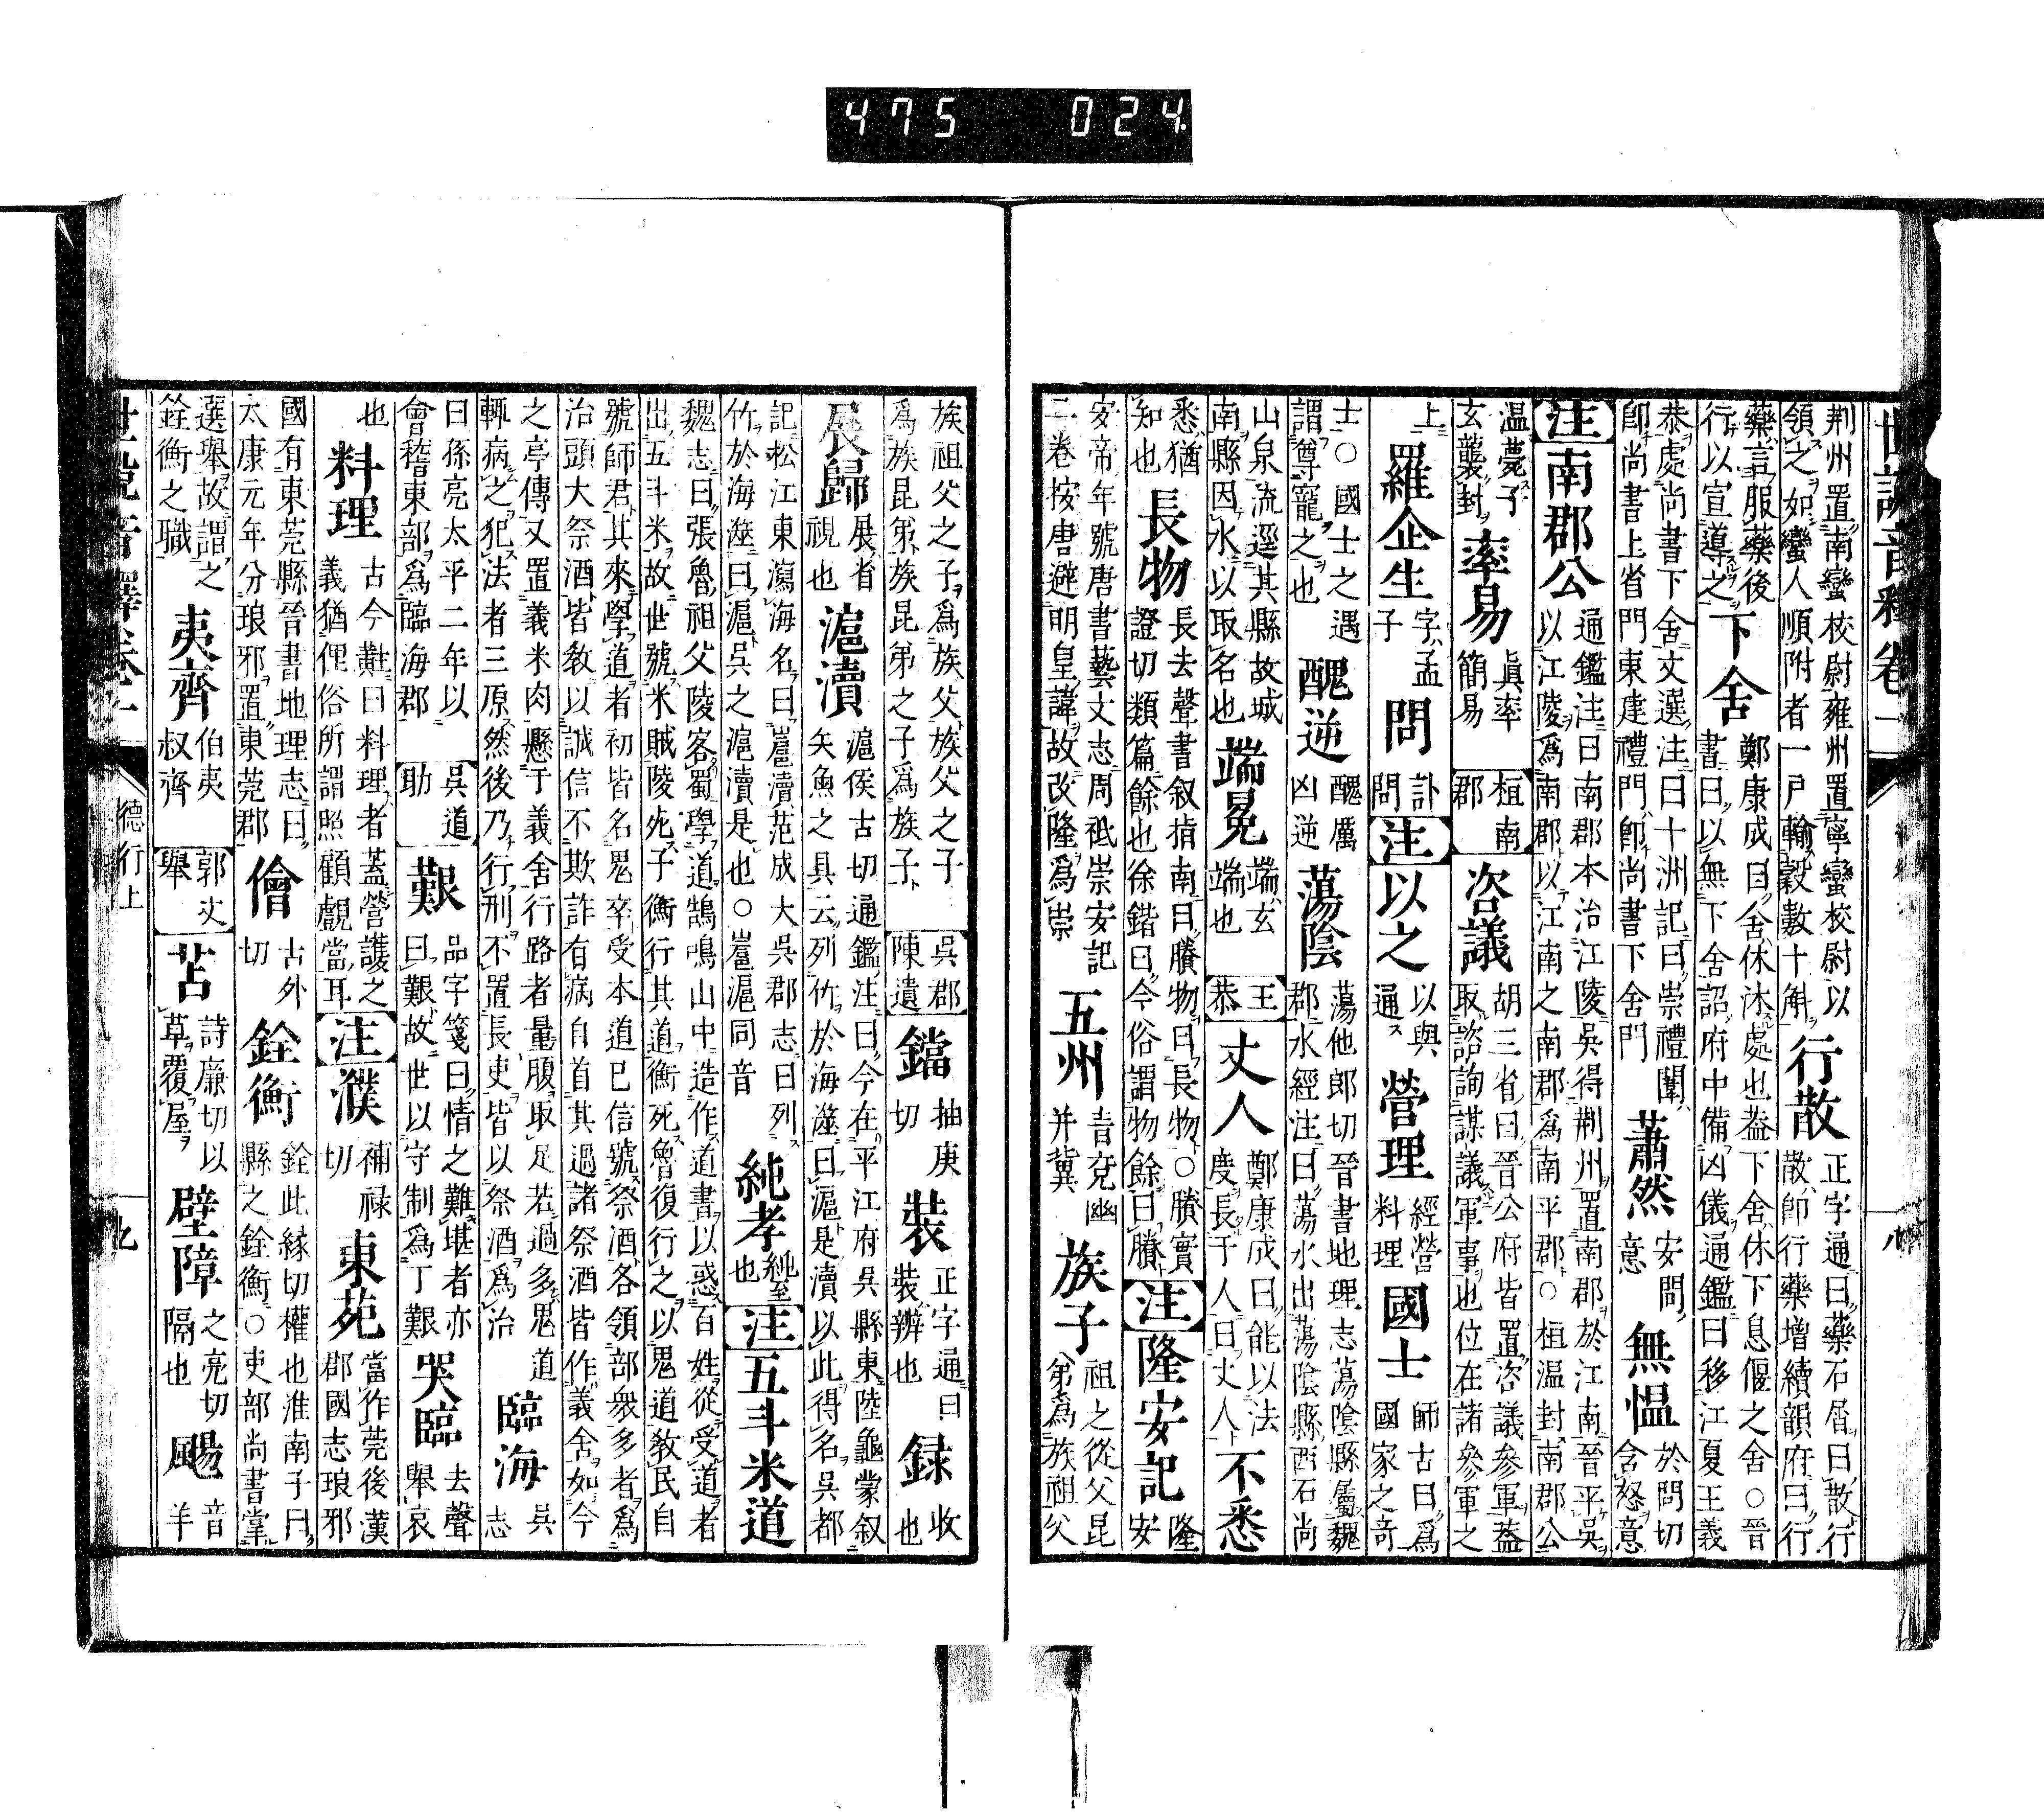 475 024
世説音釋卷一
八
荆州置南蠻校尉雍州置寧蠻校尉以領之如蠻人順附者一戸輸穀數十斛 行散 正字通曰藥石屑曰散行散卽行藥增續韻府曰行
藥言服藥後行以宣導之 下舍 鄭康成曰舍休沐處也葢下舍休下息偃之舍○晉書曰以無下舍詔府中備凶儀通鑑曰移江夏王義
恭處尚書下舍文選注曰十洲記曰崇禮闈卽尚書上省門東建禮門卽尚書下舍門 蕭然 安閒意 無慍 於問切含怒意
注 南郡公 通鑑注曰南郡本治江陵吳得荆州置南郡於江南晉平吳以江陵爲南郡以江南之南郡爲南平郡○桓温封南郡公
温薨子玄襲封 率易 眞率簡易 桓南郡 咨議 胡三省曰晉公府皆置咨議參軍葢取諮詢謀議軍事也位在諸參軍之
上 羅企生 字孟子 問 訃問 注 以之 以與通 營理 經營料理 國士 師古曰爲國家之奇
士○國士之遇謂尊寵之也 醜逆 醜厲凶逆 蕩陰 蕩他郎切晉書地理志蕩陰縣屬魏郡水經注曰蕩水出蕩陰縣西石尚
山泉流逕其縣故城南縣因水以取名也 端冕 端玄端也 王恭 丈人 鄭康成曰能以法度長于人曰丈人 不悉
悉猶知也 長物 長去聲書叙指南曰賸物曰長物○賸實證切類篇餘也徐鍇曰今俗謂物餘曰賸 注 隆安記 隆安
安帝年號唐書藝文志周祗崇安記二卷按唐避明皇諱故改隆爲崇 五州 青兗幽并冀 族子 祖之從父昆弟爲族祖父
族祖父之子爲族父族父之子爲族昆弟族昆弟之子爲族子 吳郡陳遺 鐺 抽庚切 裝 正字通曰裝辦也 録 收也
展歸 展省視也 滬瀆 滬侯古切通鑑注曰今在平江府吳縣東陸龜蒙叙矢魚之具云列竹於海澨曰滬是瀆以此得名吳都
記松江東瀉海名曰扈瀆范成大吳郡志曰列竹於海澨曰滬吳之滬瀆是也○扈滬同音 純孝 純至也 注 五斗米道
魏志曰張魯祖父陵客蜀學道鵠鳴山中造作道書以惑百姓從受道者出五斗米故世號米賊陵死子衡行其道衡死魯復行之以鬼道敎民自
號師君其來學道者初皆名鬼卒受本道已信號祭酒各領部衆多者爲治頭大祭酒皆敎以誠信不欺詐有病自首其過諸祭酒皆作義舍如今
之亭傳又置義米肉懸于義舍行路者量腹取足若過多鬼道輒病之犯法者三原然後乃行刑不置長吏皆以祭酒爲治 臨海 吳志
曰孫亮太平二年以會稽東部爲臨海郡 吳道助 艱 品字箋曰情之難堪者亦曰艱故世以守制爲丁艱 哭臨 去聲舉哀
也 料理 古今韻曰料理者蓋營護之義猶俚俗所謂照顧覷當耳 注 濮 補禄切 東苑 當作莞後漢郡國志琅邪
國有東莞縣晉書地理志曰太康元年分琅邪置東莞郡 儈 古外切 銓衡 銓此縁切權也淮南子曰縣之銓衡○吏部尚書掌
選舉故謂之銓衡之職 夷齊 伯夷叔齊 郭丈舉 苫 詩廉切以草覆屋 壁障 之亮切隔也 颺 音羊
世説音釋卷一
德行上
九